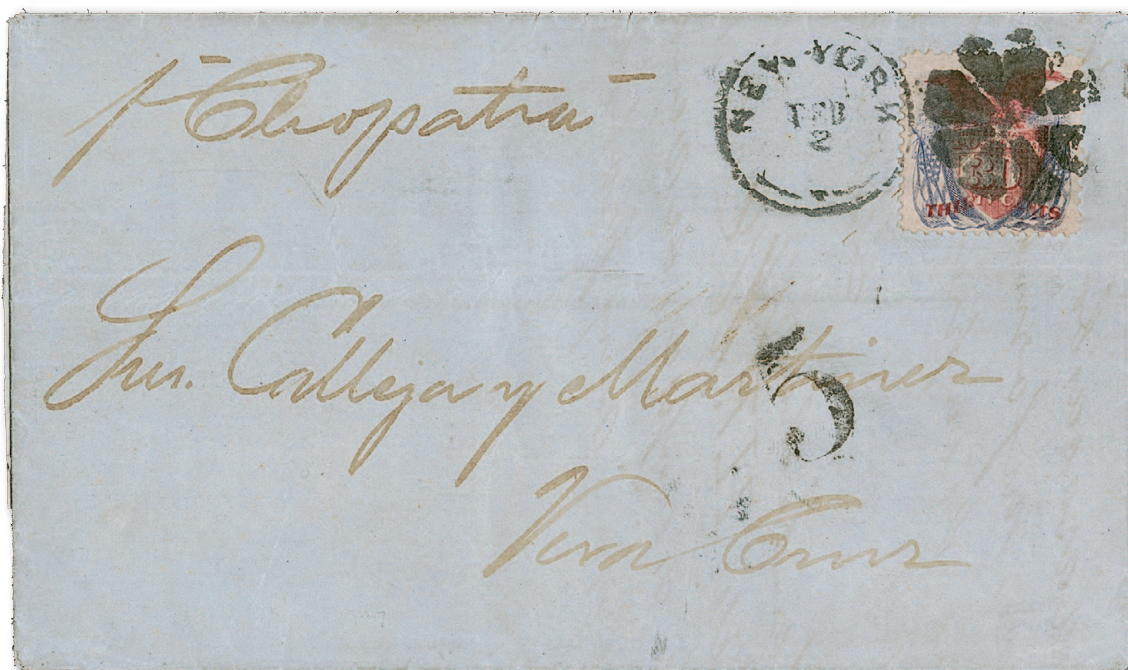 pr Cleopatra
NEW YORK
FEB
2
30
THIRTY CENTS
Sres. Calleja y Martinez
5
Vera Cruz